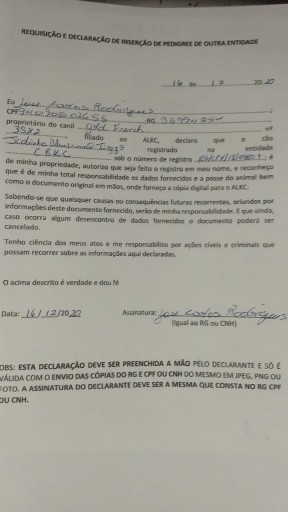 REQUISIÇÃO E DECLARAÇÃO DE INSERÇÃO DE PEDIGREE DE OUTRA ENTIDADE
16 de 12 2020
Eu Jose Carlos Rodrigues
CPF RG
proprietário do canil Gold French nº
3582 filiado ao ALKC, declaro que o cão
registrado na entidade
CBKC sob o número de registro é
de minha propriedade, autorizo que seja feito o registro em meu nome, e reconheço
que é de minha total responsabilidade os dados fornecidos e a posse do animal bem
como o documento original em mãos, onde forneço a cópia digital para o ALKC.
Sabendo-se que quaisquer causas ou consequências futuras recorrentes, oriundos por
informações deste documento fornecido, serão de minha responsabilidade. E que ainda,
caso ocorra algum desencontro de dados fornecidos o documento poderá ser
cancelado.
Tenho ciência dos meus atos e me responsabilizo por ações cíveis e criminais que
possam recorrer sobre as informações aqui declaradas.
O acima descrito é verdade e dou fé
Data: 16/12/2020 Assinatura: Jose Carlos Rodrigues
(Igual ao RG ou CNH)
OBS: ESTA DECLARAÇÃO DEVE SER PREENCHIDA A MÃO PELO DECLARANTE E SÓ É
VÁLIDA COM O ENVIO DAS CÓPIAS DO RG E CPF OU CNH DO MESMO EM JPEG, PNG OU
FOTO. A ASSINATURA DO DECLARANTE DEVE SER A MESMA QUE CONSTA NO RG CPF
OU CNH.